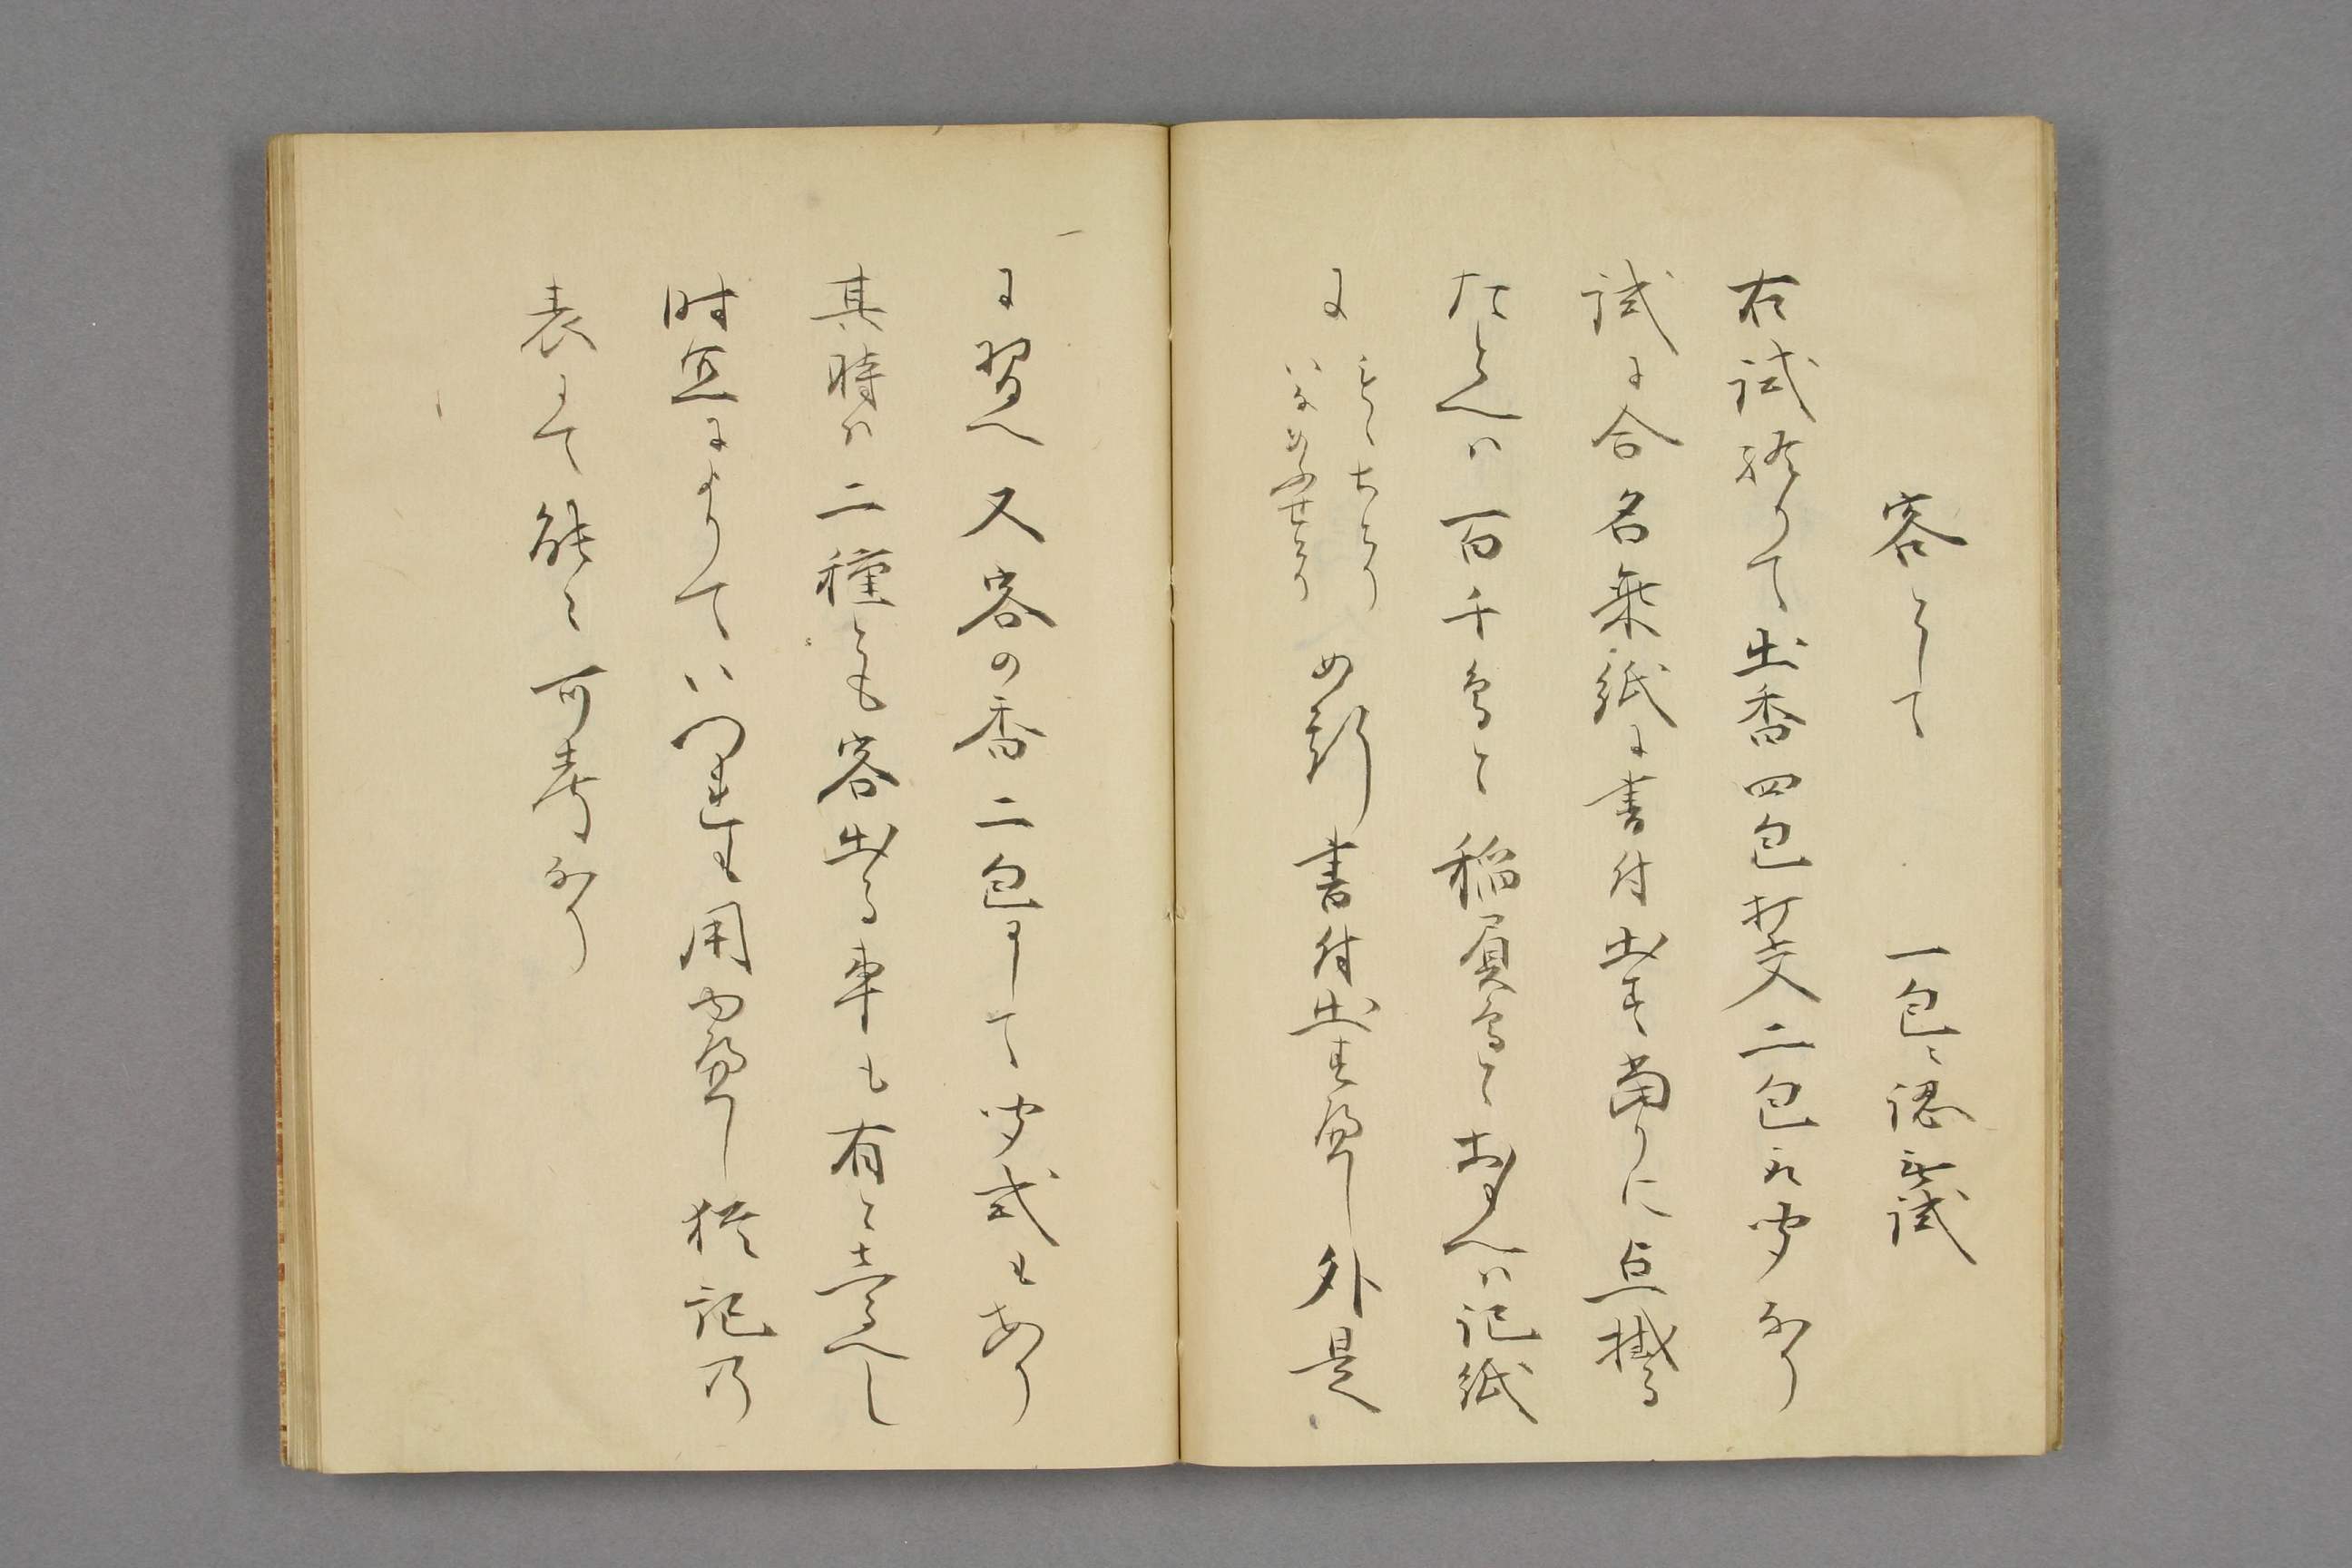 客として　一包ニ認無試
右試終りて出香四包打交二包取聞なり
試に合名乗紙に書付出す当りに点掛る
たとへは百千鳥と稲負鳥とおもへは記紙
に　もゝちとり　いなおふせとり　如斯書付出す へし外是
に習へ又客の香二包にして聞式もあり
其時は二種とも客出る事も有と意へし
時宜によりてハ何れも用ゆへし猶記乃
表にて能々可考なり